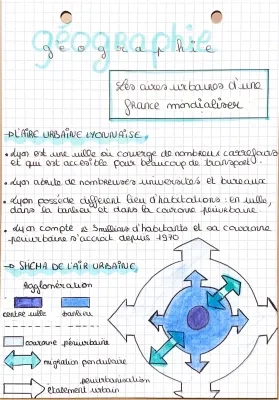 géographie
géographie
Les aires urbaines d'une
france mondialiser
→ L'AIRE URBAINE LYONNAISE,
• Lyon est une ville où converge de nombreux carrefours
et qui est accesible pour beaucoup de transport.
• Lyon abrite de nombreuses universités et bureaux
• Lyon possède différent lieu d'habitations: en ville,
dans la banlieu et dans la couronne périurbaine
• Lyon compte 3 millions d'habitants et sa couronne
périurbaine s'accroit depuis 1970
→ SHCMA DE L'AIR URBAINE,
Agglomération
centre ville banlieu
couronne périurbaine
migration pendulaire
périurbanisation
étalement urbain